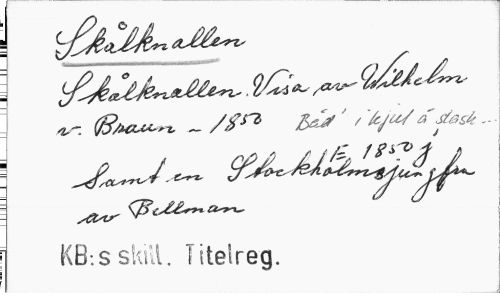 Skålknallen
Skålknallen. Visa av Wilhelm
v. Braun – 1850 Båd' i kjol å
E 1850 j
Samt en Stockholmsjungfru
av Bellman
KB:s skill. Titelreg.